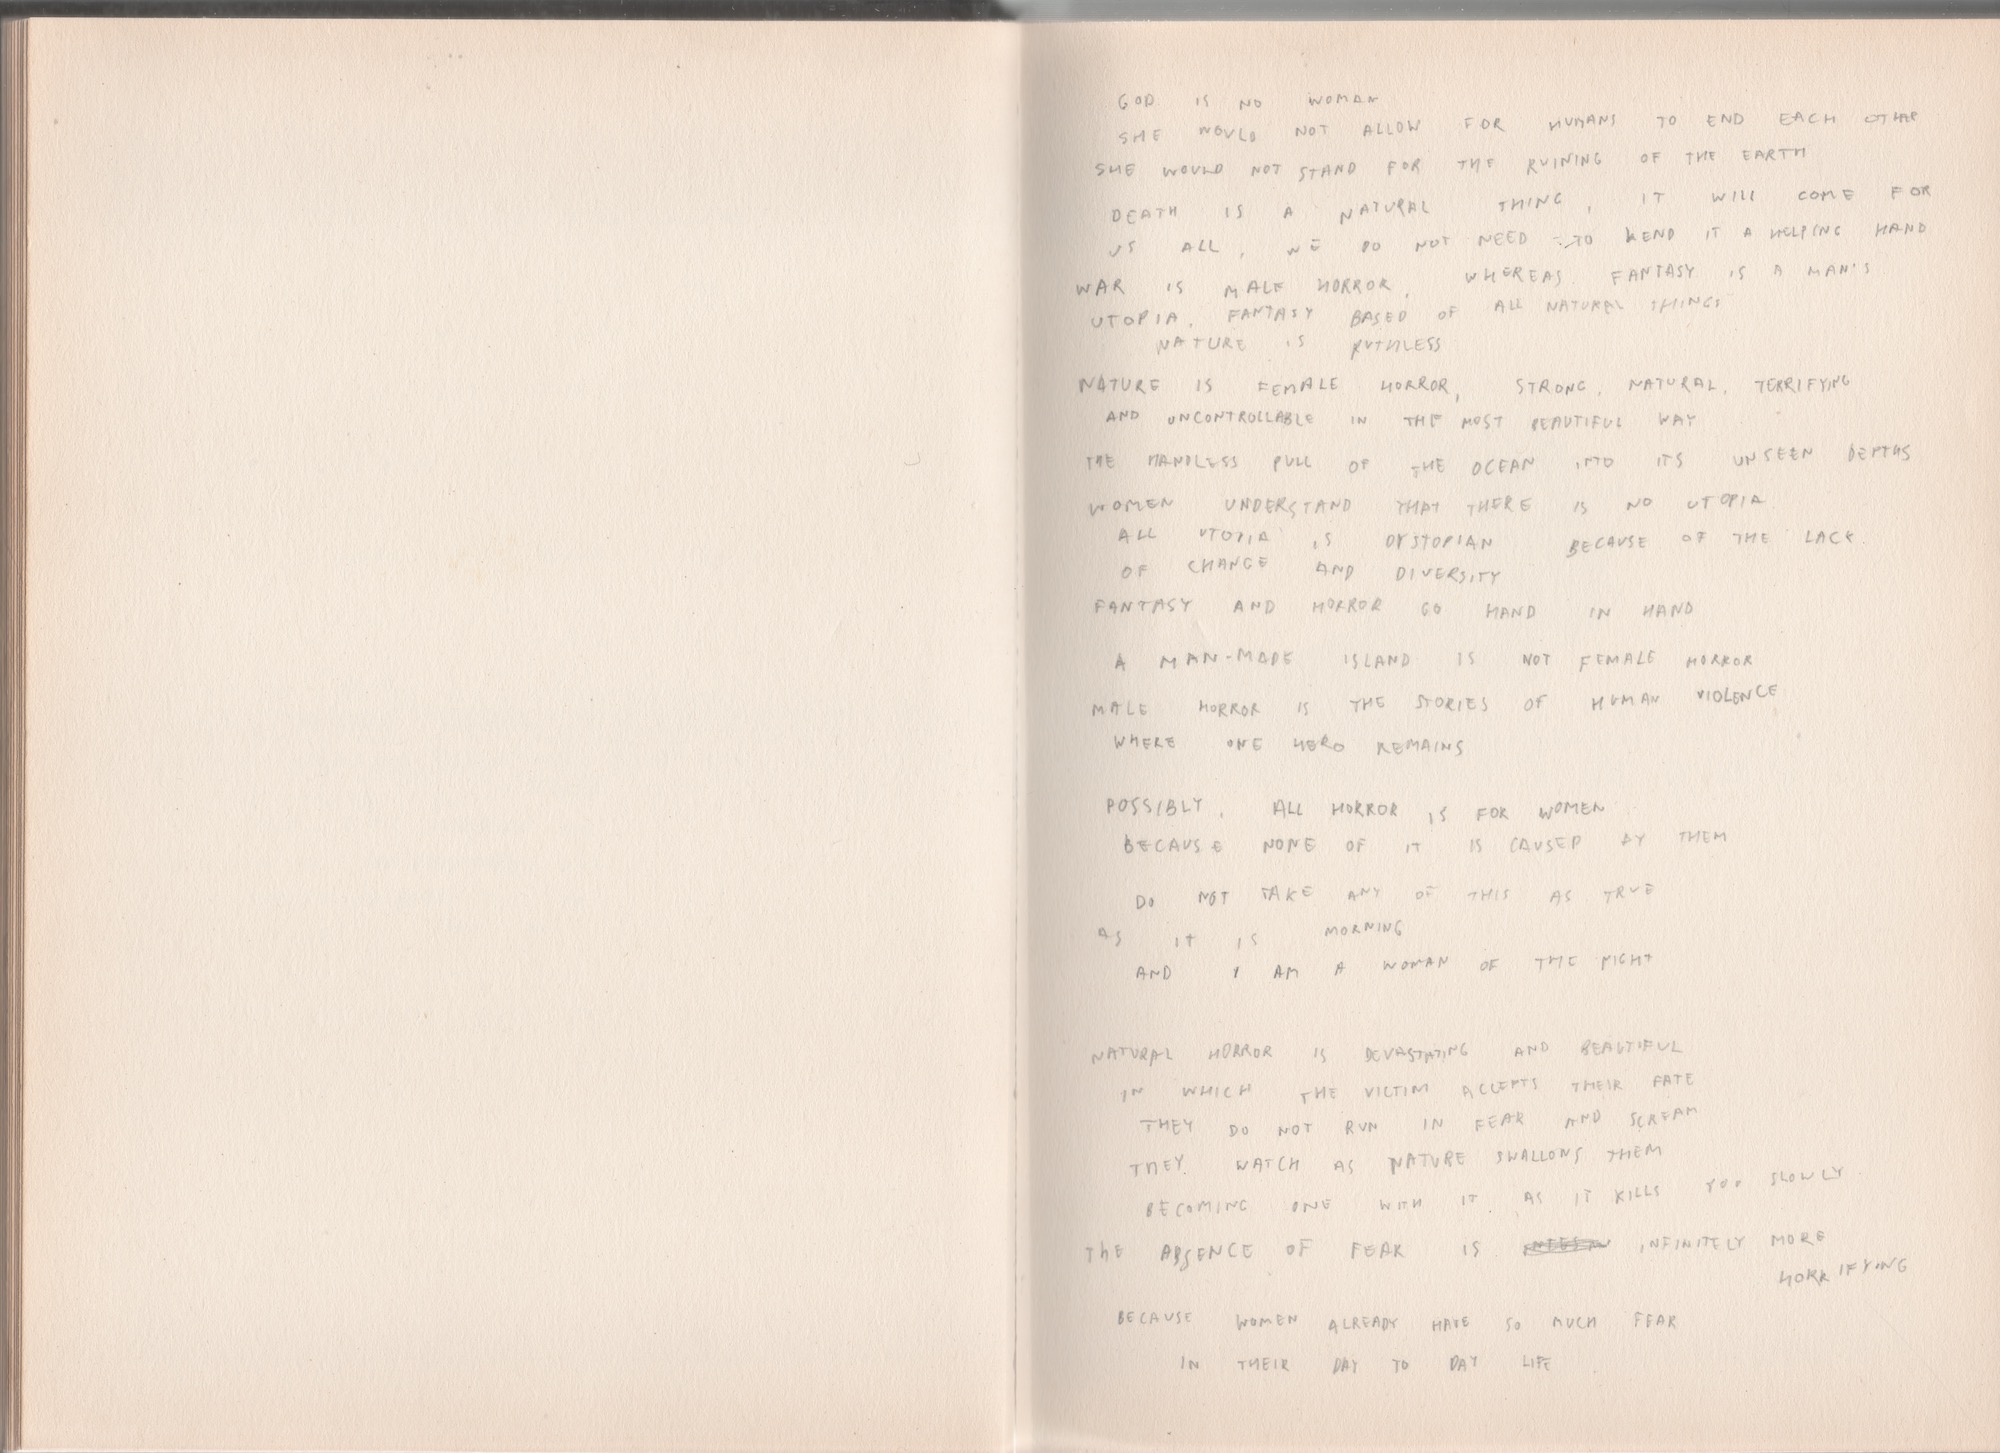 GOD IS NO WOMAN
SHE WOULD NOT ALLOW FOR HUMANS TO END EACH OTHER
SHE WOULD NOT STAND FOR THE RUINING OF THE EARTH
DEATH IS A NATURAL THING, IT WILL COME FOR
US ALL, WE DO NOT NEED TO LEND IT A HELPING HAND
WAR IS MALE HORROR, WHEREAS FANTASY IS A MAN'S
UTOPIA, FANTASY BASED OF ALL NATURAL THINGS
NATURE IS RUTHLESS
NATURE IS FEMALE HORROR, STRONG, NATURAL, TERRIFYING
AND UNCONTROLLABLE IN THE MOST BEAUTIFUL WAY
THE HANDLESS PULL OF THE OCEAN INTO ITS UNSEEN DEPTHS
WOMEN UNDERSTAND THAT THERE IS NO UTOPIA
ALL UTOPIA IS DYSTOPIAN BECAUSE OF THE LACK
OF CHANGE AND DIVERSITY
FANTASY AND HORROR GO HAND IN HAND
A MAN-MADE ISLAND IS NOT FEMALE HORROR
MALE HORROR IS THE STORIES OF HUMAN VIOLENCE
WHERE ONE HERO REMAINS
POSSIBLY, ALL HORROR IS FOR WOMEN
BECAUSE NONE OF IT IS CAUSED BY THEM
DO NOT TAKE ANY OF THIS AS TRUE
AS IT IS MORNING
AND I AM A WOMAN OF THE NIGHT
NATURAL HORROR IS DEVASTATING AND BEAUTIFUL
IN WHICH THE VICTIM ACCEPTS THEIR FATE
THEY DO NOT RUN IN FEAR AND SCREAM
THEY WATCH AS NATURE SWALLOWS THEM
BECOMING ONE WITH IT AS IT KILLS YOU SLOWLY
THE ABSENCE OF FEAR IS INFINITELY MORE
HORRIFYING
BECAUSE WOMEN ALREADY HAVE SO MUCH FEAR
IN THEIR DAY TO DAY LIFE